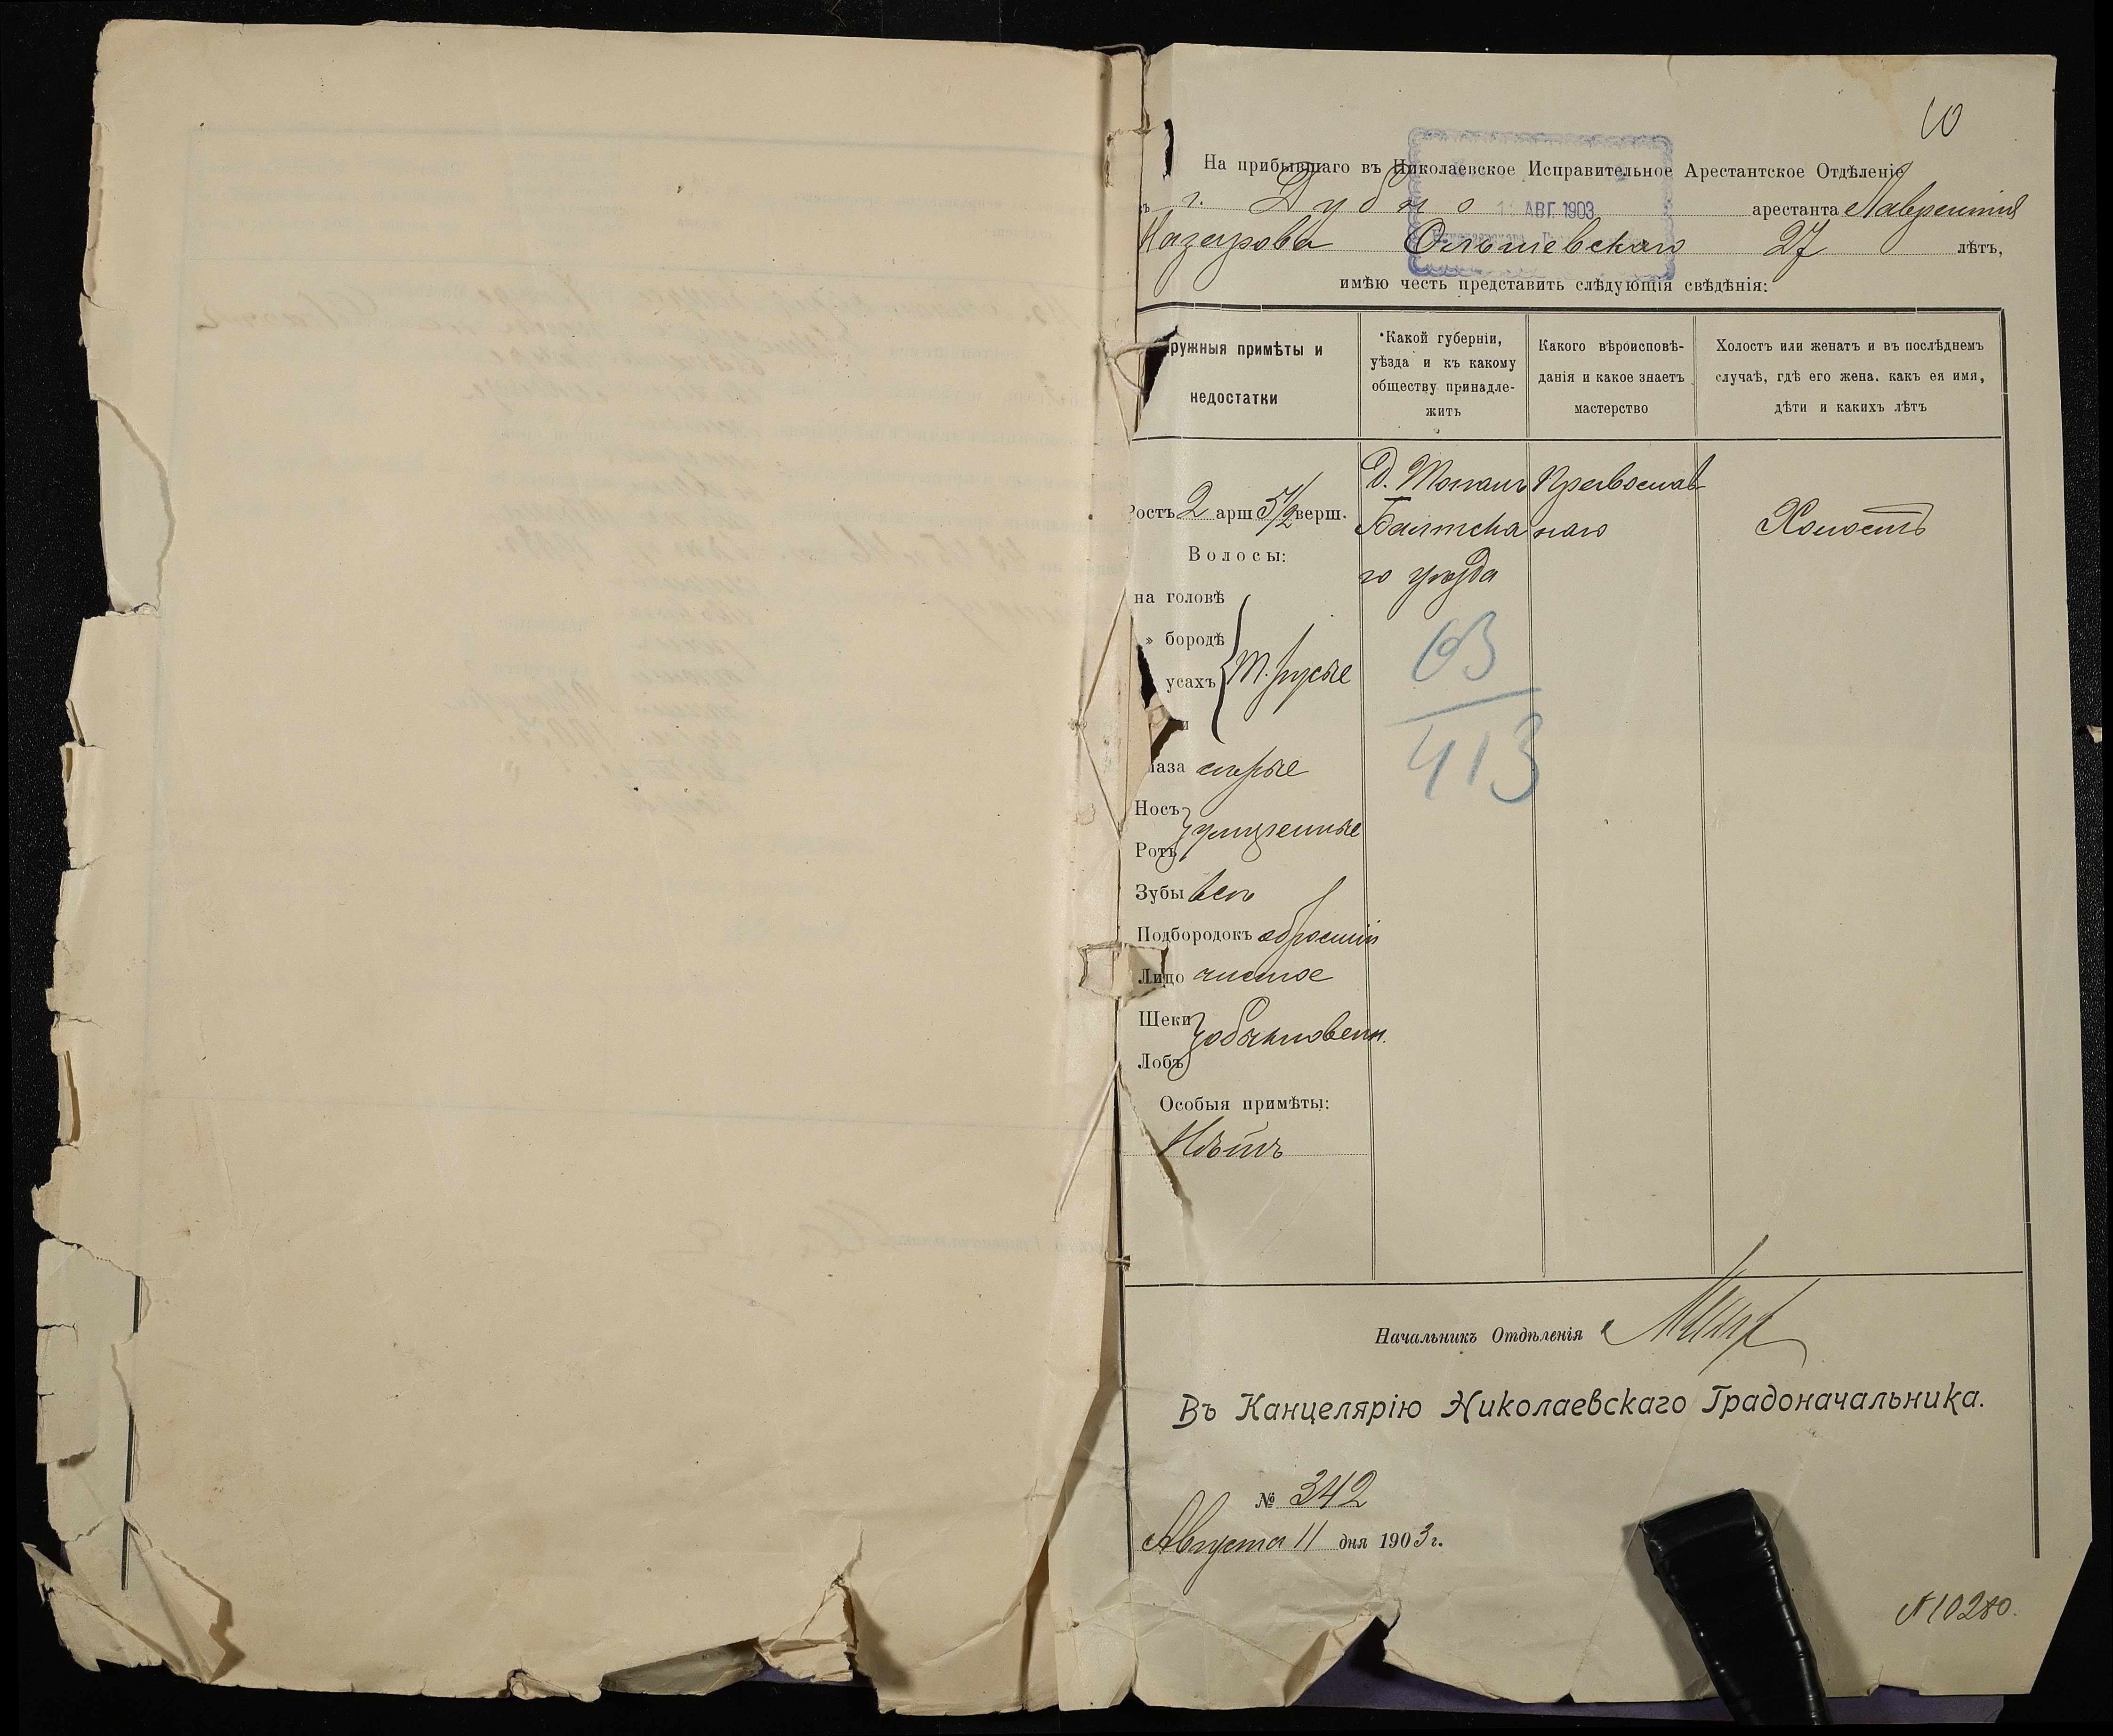 10
На прибывшаго въ Николаевское Исправительное Арестантское Отдѣленіе
г. Дубно арестанта Лаврентія
АВГ. 1903
Назарова Ольшевскаго 27 лѣтъ,
имѣю честь представить слѣдующія свѣдѣнія:
ружныя примѣты и недостатки
Какой губерніи, уѣзда и къ какому обществу принадле-житъ
Какого вѣроисповѣ-данія и какое знаетъ мастерство
Холостъ или женатъ и въ послѣднемъ случаѣ, гдѣ его жена, какъ ея имя, дѣти и какихъ лѣтъ
Ростъ 2 арш 5 1/2 верш.
Волосы:
на головѣ
» бородѣ
усахъ
т. русые
лаза сѣрые
Носъ
Ротъ
умѣренные
Зубы всѣ
Подбородокъ обросшій
Лицо чистое
Щеки
Лобъ
обыкновен.
Особыя примѣты:
Нѣтъ
Балтска
го уѣзда
63
413
Православ
наго
Холостъ
Начальникъ Отдѣленія
Въ Канцелярію Николаевскаго Градоначальника.
№ 342
Августа 11 дня 1903 г.
№ 10280.